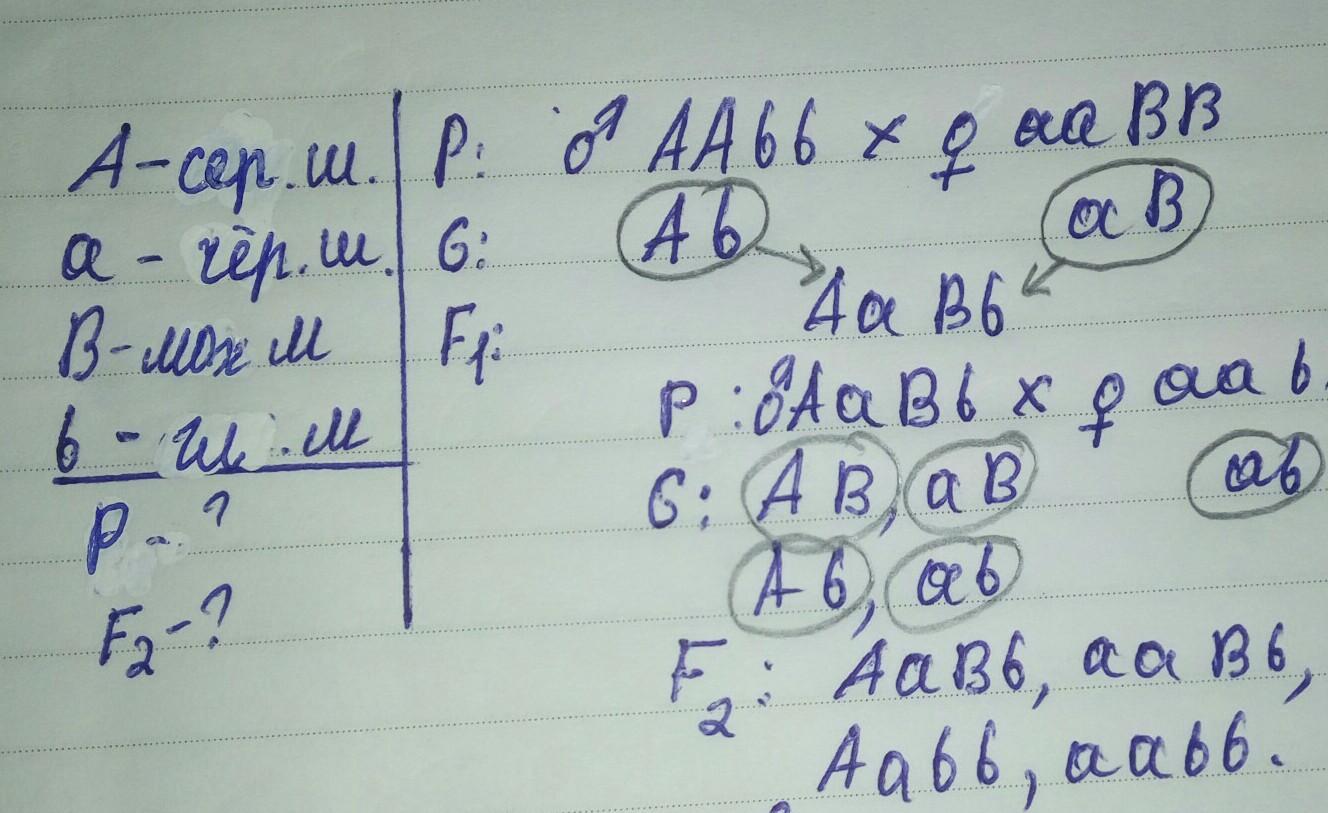 А-сер.ш.
а - чёр.ш.
В-мох м
b - гл.м
P - ?
F2-?
P: ♂ AAbb × ♀ aaBB
G: Ab aB
F1: AaBb
P: ♂AaBb × ♀ aab
G: AB, aB ab
Ab, ab
F2: AaBb, aaBb,
Aabb, aabb.